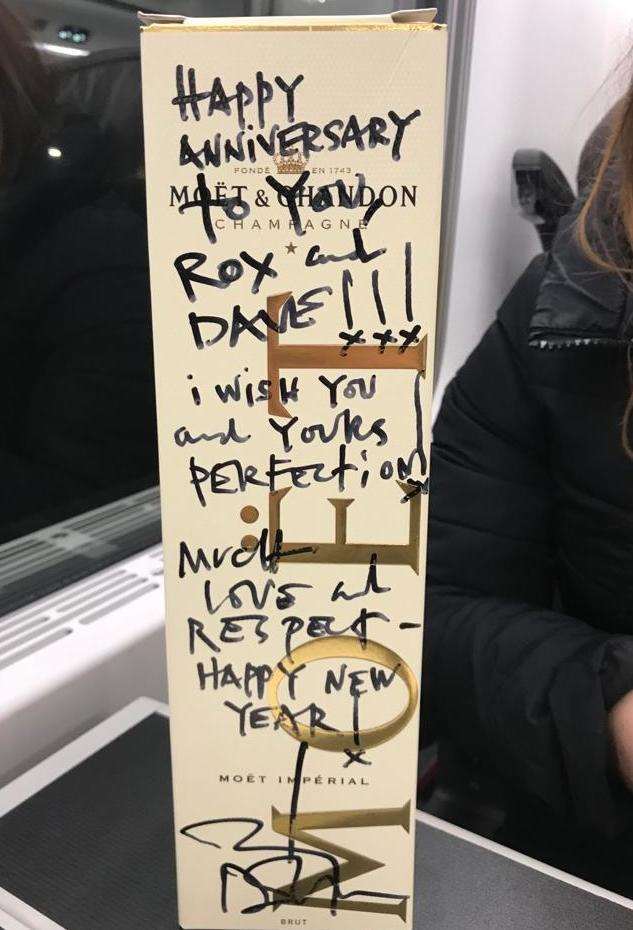 HAPPY
ANNiVERSARY
FONDÉ EN 1743
to You
MOËT & CHANDON
CHAMPAGNE
ROX and
DAVE!!!
xxx
i WISH YOU
and YOURS
PERFECTiON!
x
MUCH
LOVE and
RESPECT -
HAPPY NEW
YEAR!
x
MOËT IMPÉRIAL
MOËT
BRUT